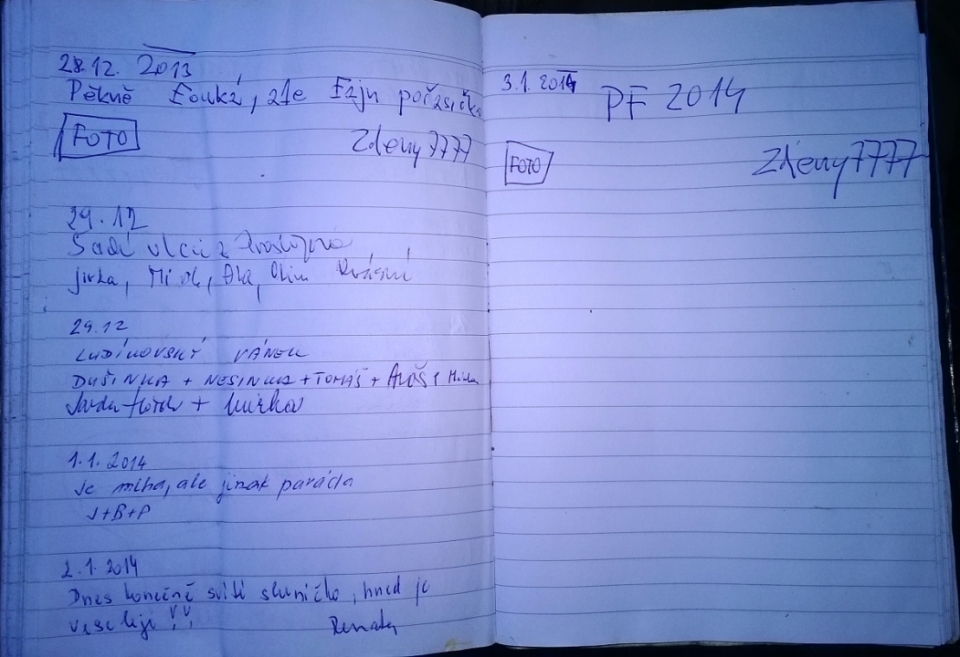 28.12. 2013
Pěkně Fouká, ale Fajn počasíčko
FOTO
Zdeny7777
29.12
Šedí vlci z
Jirka, Mi
29.12
LUDÍKOVSKÝ VÁNEK
DUŠINKA + NESINKA + TOMÁŠ +
+ Mirka
1.1. 2014
Je mlha, ale jinak paráda
J+B+P
2.1. 2014
Dnes konečně svítí sluníčko, hned je
veseleji !!
Renata
3.1. 2014
PF 2014
FOTO
Zdeny7777